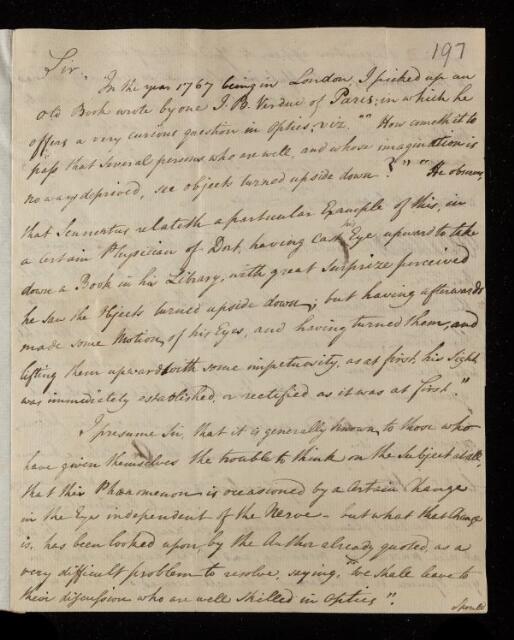 197
Sir,
In the year 1767 being in London, I picked up an
old Book wrote by one J. B. Verdue of Paris; in which he
offers a very curious question in Optics, viz. "" How cometh it to
pass that Several persons who are well, and whose imagination is
no ways deprived, see objects turned upside down?" "" He observes,
that Sennertus relateth a particular Example of this, in
a certain Physician of Dort, having cast his Eye upward to take
down a Book in his Library, with great Surprize perceived
he saw the Objects turned upside down; but having afterwards
made some Motion of his Eyes, and having turned them, and
lifting them upward with some impetuosity, as at first, his Sight
was immediately established, or rectified as it was at first."
I presume Sir, that it is generally known, to those who
have given themselves the trouble to think on the Subject at all,
that this Phænomenon is occasioned by a Certain Change
in the Eye independent of the Nerve – but what that Change
is, has been looked upon, by the Author already quoted, as a
very difficult problem to resolve, saying, "We shall leave to
their discussion who are well skilled in Optics".
Should